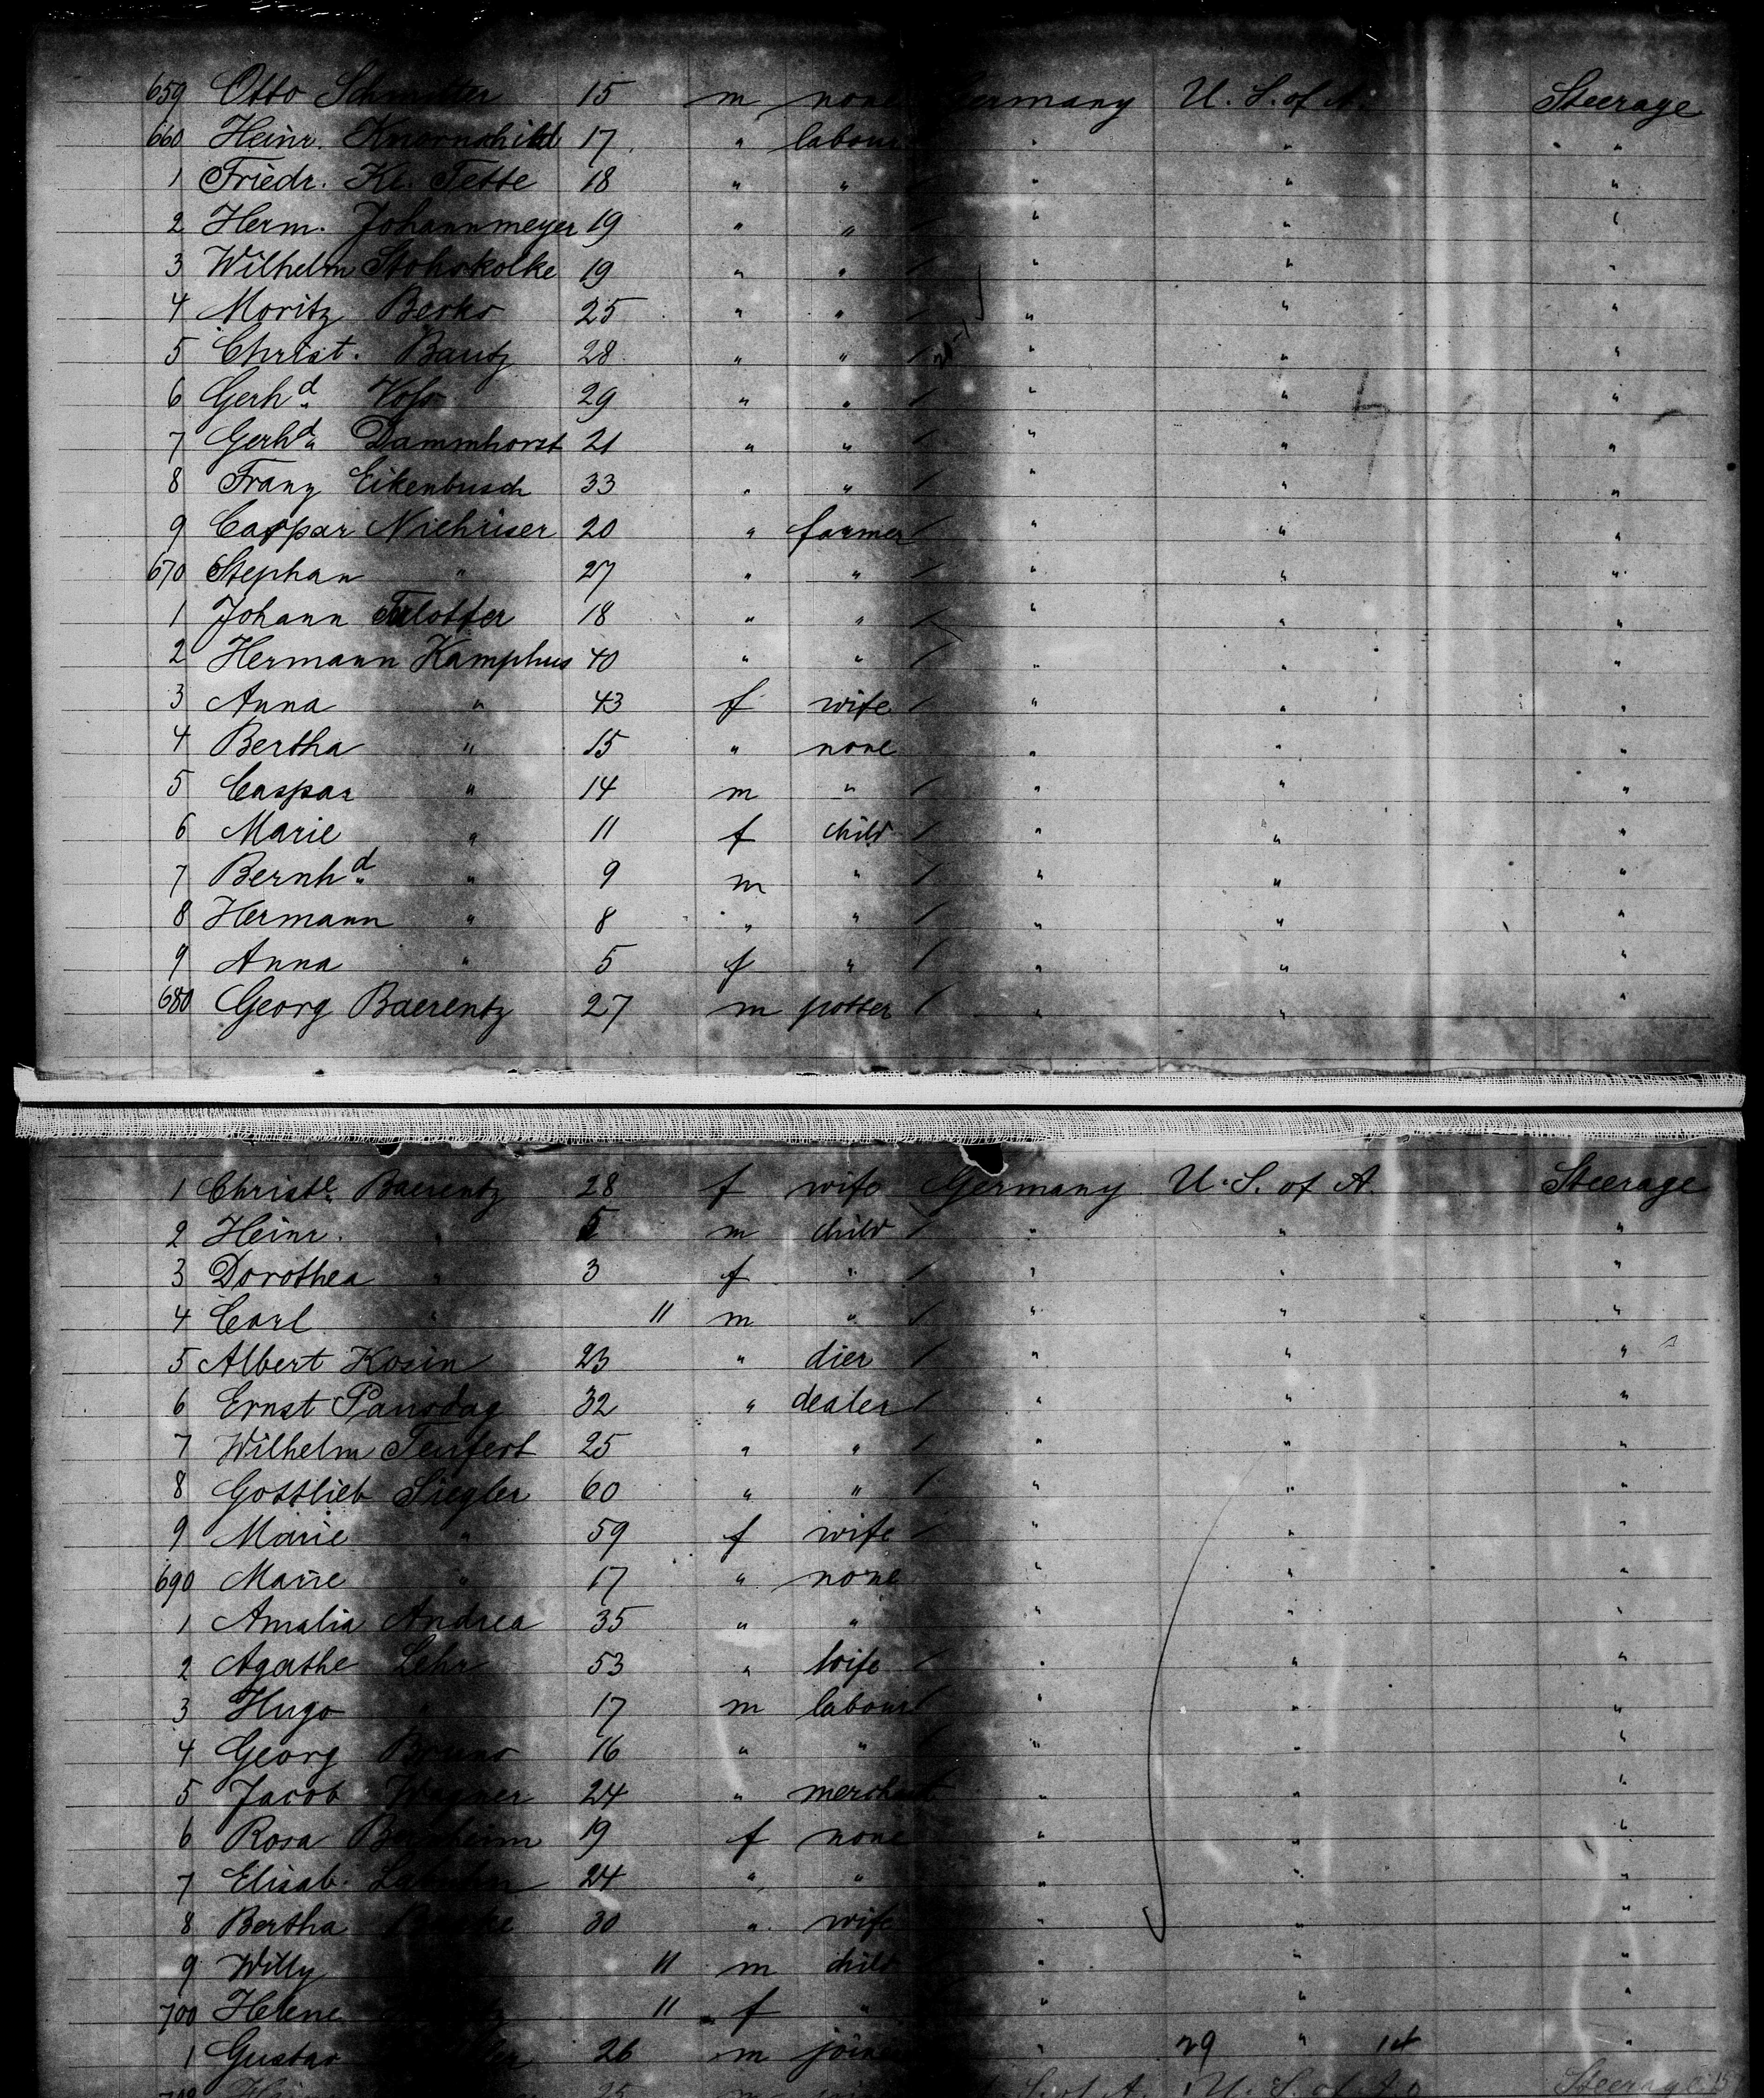 659 Otto Schmitter 15 m none Germany U. S. of A. Steerage
660 Heinr. 17 " labour " " "
1 Friedr. Kl. Tette 18 " " " " "
2 Herm. Johannmeyer 19 " " " "
3 Wilhelm 19 " " " " "
4 Moritz 25 " " " " "
5 Christ. Bautz 28 " " " " "
6 Gerhd. Voss 29 " " " " "
7 Gerhd. Dammhorst 21 " " " " "
8 Franz Eikenbusch 33 " " " " "
9 Caspar Niehriser 20 " farmer " " "
670 Stephan " 27 " " " " "
1 Johann 18 " " " " "
2 Hermann Kamphus 40 " " " " "
3 Anna " 43 f wife " " "
4 Bertha " 15 " none " " "
5 Caspar " 14 m " " " "
6 Marie " 11 f child " " "
7 Bernhd. " 9 m " " " "
8 Hermann " 8 " " " " "
9 Anna " 5 f " " " "
680 Georg Baerentz 27 m potter " " "
1 Christe. Baerentz 28 f wife Germany U. S. of A. Steerage
2 Heinr. " 5 m child " " "
3 Dorothea " 3 f " " " "
4 Carl " 11 m " " " "
5 Albert Kosin 23 " dier " " "
6 Ernst Pansdag 32 " dealer " " "
7 Wilhelm Teufert 25 " " " " "
8 Gottlieb Siegler 60 " " " " "
9 Marie " 59 f wife " " "
690 Marie " 17 " none " " "
1 Amalia Andrea 35 " " " " "
2 Agathe Lehr 53 " wife " " "
3 Hugo " 17 m labour " " "
4 Georg Bruns 16 " " " " "
5 Jacob Wagner 24 " merchant " " "
6 Rosa 19 f none " " "
7 Elisab. 24 " " " " "
8 Bertha 30 " wife " " "
9 Willy 11 m child " " "
700 Helene 11 f " " " "
1 Gustav 26 m joiner " 29 " 14 "
25 U. S. of A. Steerage